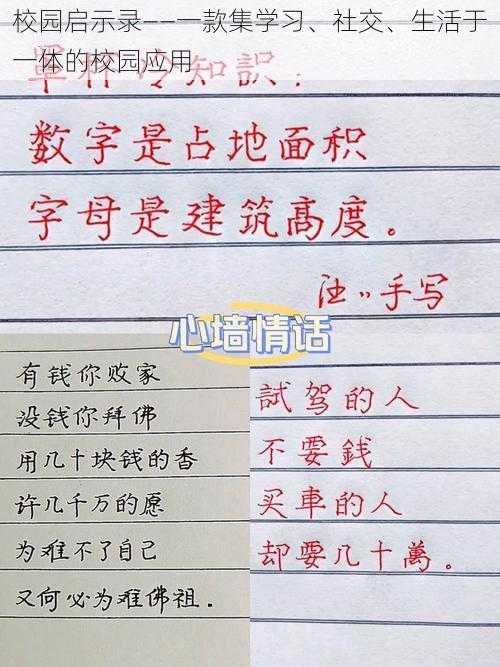 校园启示录——一款集学习、社交、生活于
一体的校园应用
罩杯冷知識：
数字是占地面积
字母是建筑高度。
注：手写
心墙情话
有钱你败家
没钱你拜佛
用几十块钱的香
许几千万的愿
为难不了自己
又何必为难佛祖．
試驾的人
不要錢
买車的人
却要几十萬。